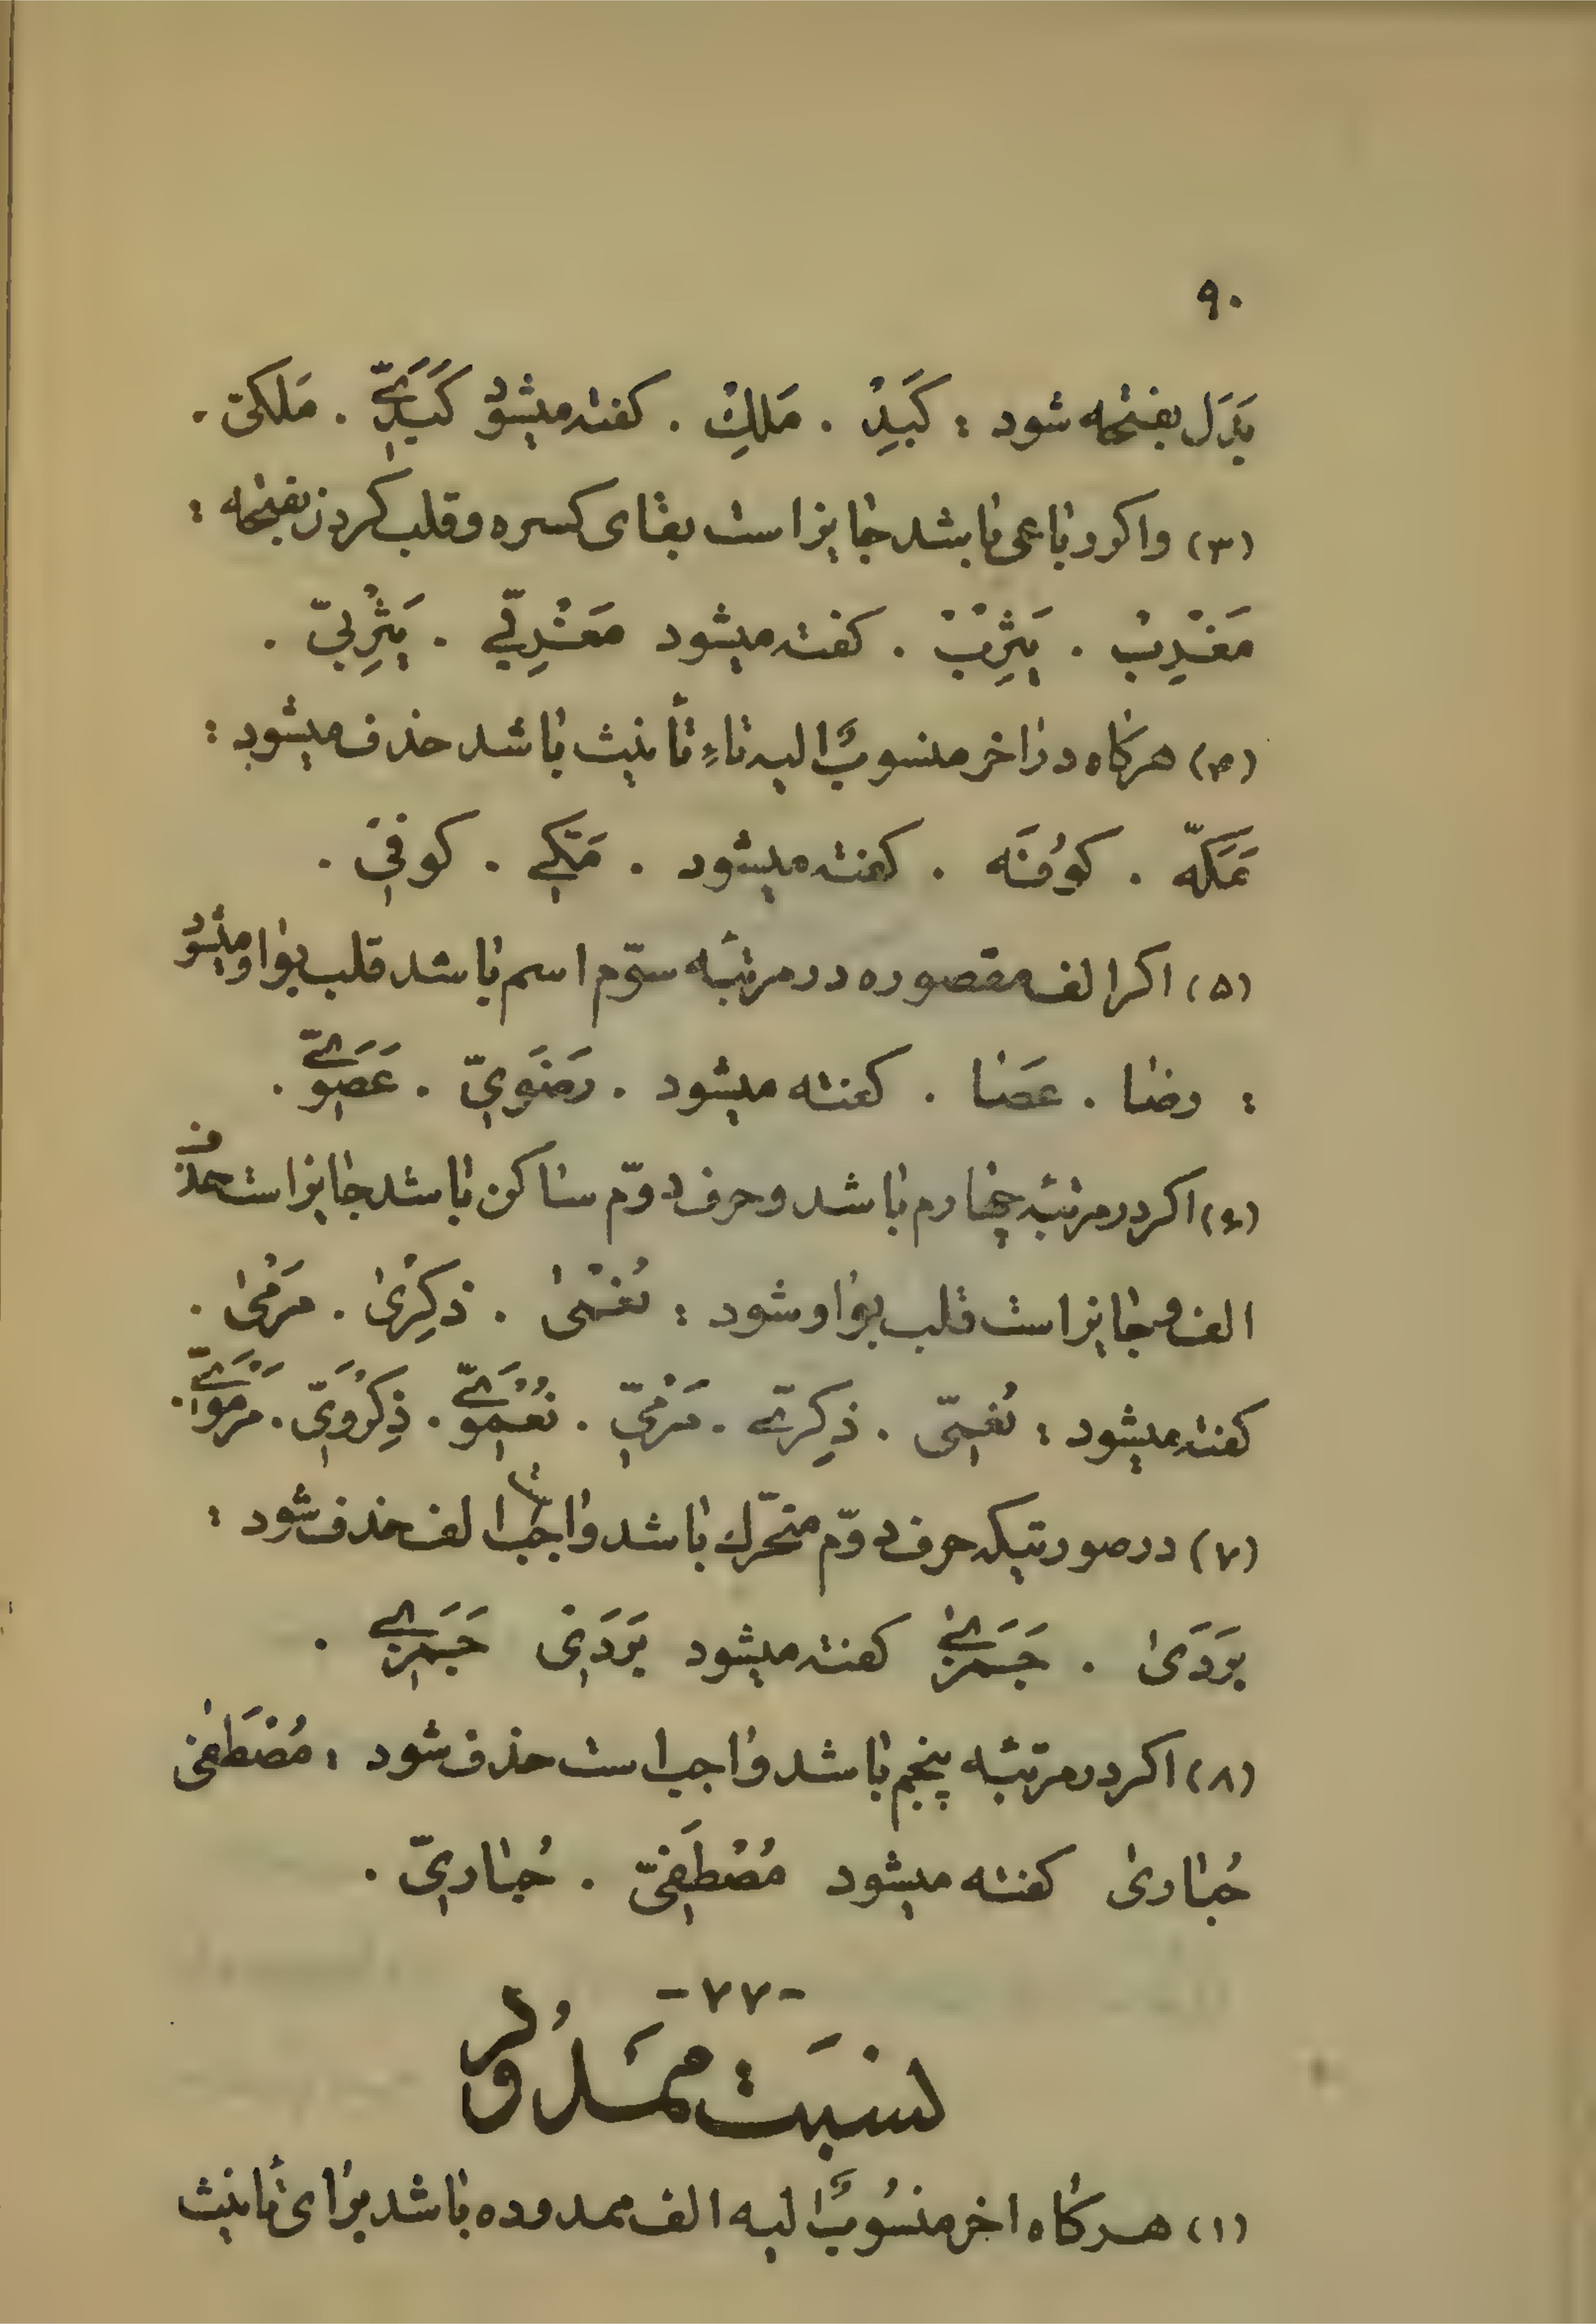 ۹۰
بَدَل بفتحه شود : کَبِدْ . مَلِكْ . کفته میشود کَبَدِیّ . مَلَکیّ .
(۳) واکر رباعی باشد جایز است بقای کسره و قلب کردن بفتحه :
مَغْرِبْ . یَثْرِبْ . کفته میشود مَغْرِبّی . یَثْرِبیّ .
(۴) هرکاه در اخر منسوبٌ الیه تاءِ تأنیث باشد حذف میشود :
مَکَّه . کوُفَه . کفته میشود . مَکّی . کوفیّ .
(۵) اکر الف مقصوره در مرتبَه سوّم اسم باشد قلب بواو میشود
: رضا . عَصَا . کفته میشود . رَضَوِیّ . عَصَوِیّ .
(۶) اکر در مرتبَه چهارم باشد و حرف دوّم ساکن باشد جایز است حذف
الف و جایز است قلب بواو شود : نُعْمیٰ . ذِکِرْیٰ . مَرْمیٰ .
کفته میشود : نُعْمیّ . ذِکِرِیّ . مَرْمِیّ . نُعْمَوِیّ . ذِکْرَوِیّ . مَرْمَوِیّ .
(۷) در صورتیکه حرف دوّم متحّرك باشد واجب است الف حذف شود :
بَرَدَیٰ . جَمَزیٰ کفته میشود بَرَدَی جَمَزِی .
(۸) اکر در مرتبَه پنجم باشد واجب است حذف شود : مُصْطَفیٰ
حُبٰاریٰ کفته میشود مُصْطَفیّ . حُباریّ .
-۷۷-
نسبَت ممَدُود
(۱) هرکاه اخر منسُوبٌ الیه الف ممدوده باشد برای تأنیث